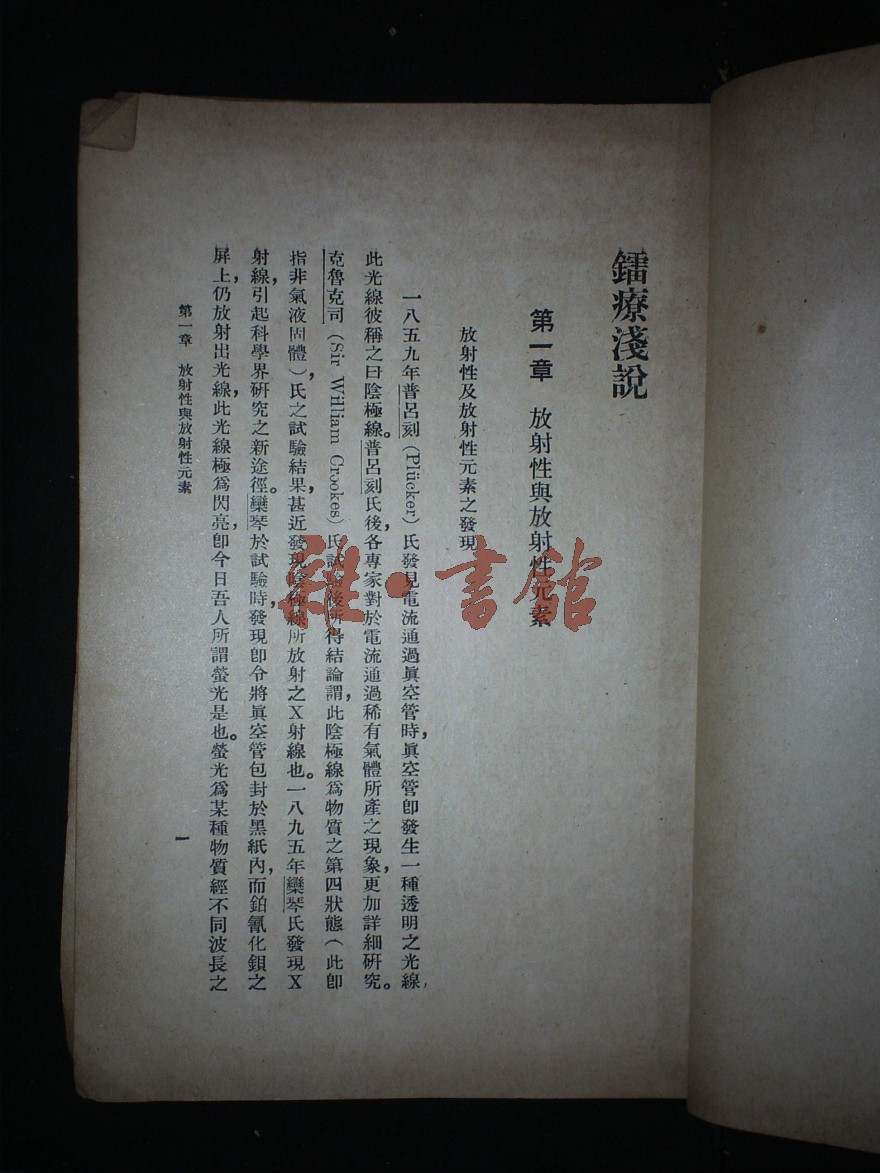 鐳療淺說
第一章　放射性與放射性元素
放射性及放射性元素之發現
一八五九年普呂刻(Plücker)氏發見電流通過眞空管時，眞空管卽發生一種透明之光線，
此光線彼稱之曰陰極線。普呂刻氏後，各專家對於電流通過稀有氣體所產之現象，更加詳細研究。
克魯克司(Sir William Crookes)氏試驗後所得結論謂，此陰極線爲物質之第四狀態(此卽
指非氣液固體)，氏之試驗結果，甚近發現陰極線所放射之X射線也。一八九五年欒琴氏發現X
射線，引起科學界研究之新途徑。欒琴於試驗時，發現卽令將眞空管包封於黑紙內，而鉑氰化鋇之
屏上，仍放射出光線，此光線極爲閃亮，卽今日吾人所謂螢光是也。螢光爲某種物質經不同波長之
第一章　放射性與放射性元素
一
雜·書館